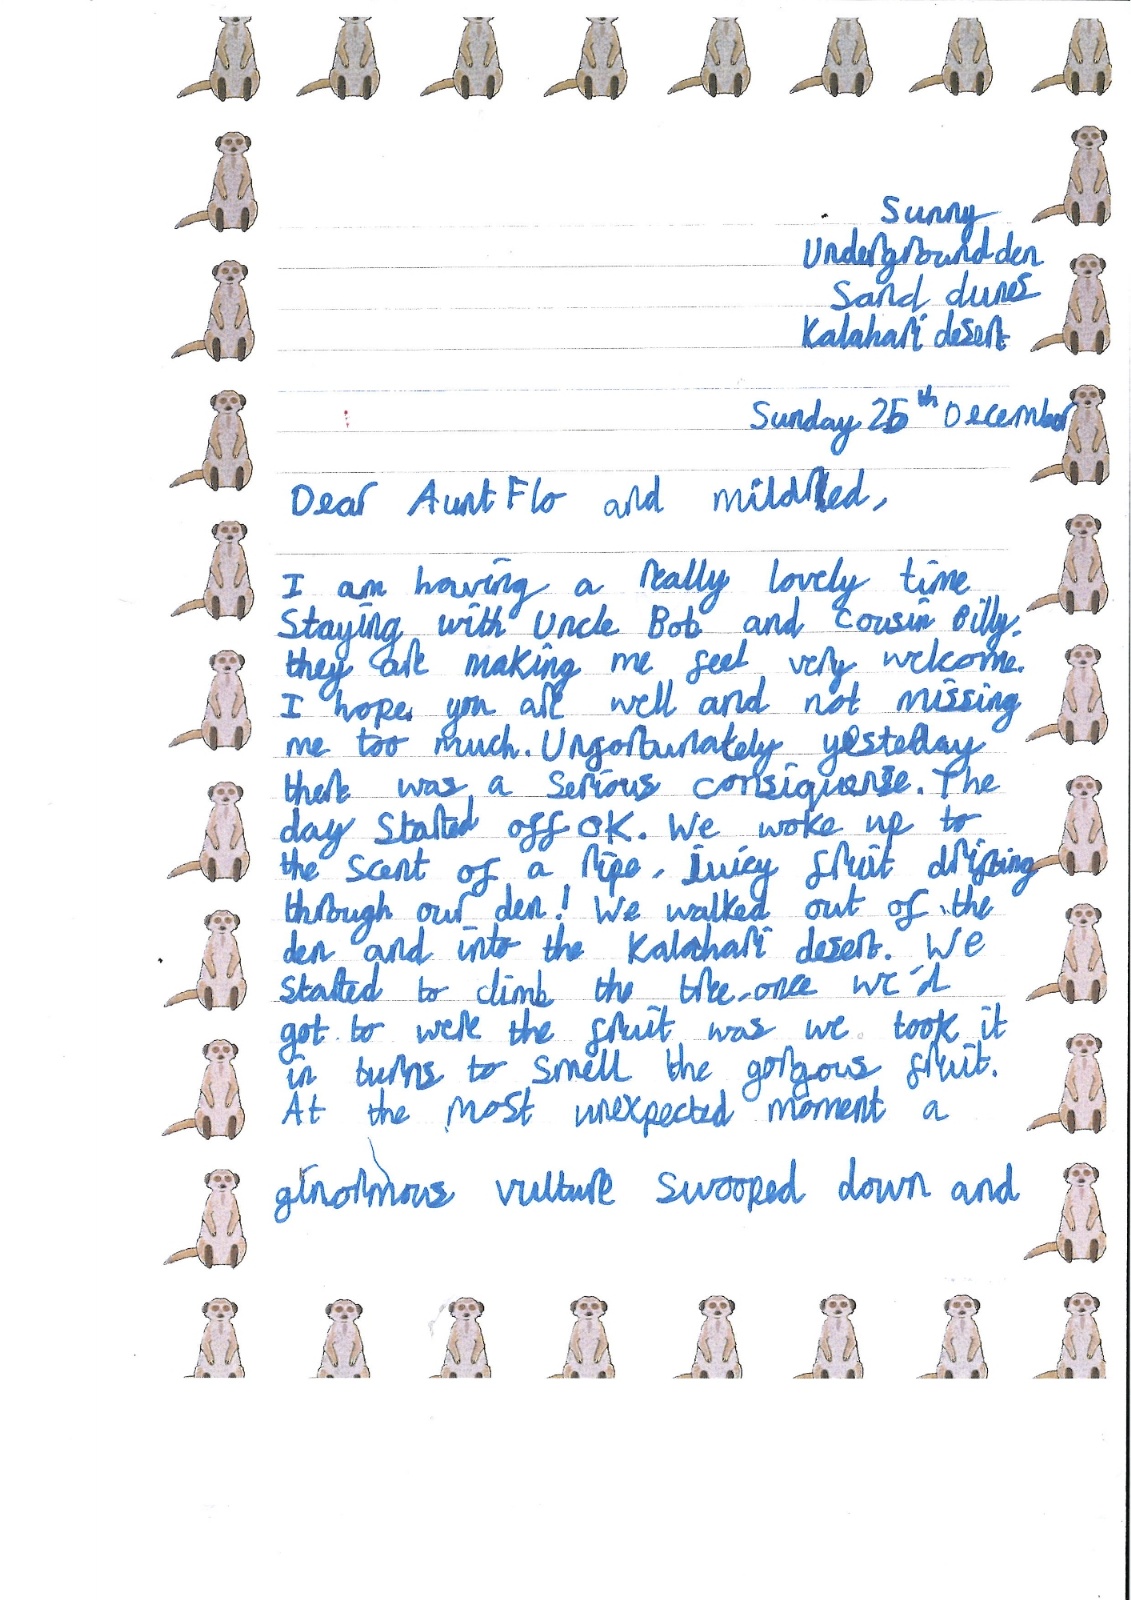 Sunny
Underground den
Sand dunes
Kalahari desert
Sunday 25th December
Dear Aunt Flo and mildred,
I am having a really lovely time
Staying with Uncle Bob and Cousin Billy.
they are making me feel very welcome.
I hope you are well and not missing
me too much. Unfortunately yesterday
there was a serious consiquense. The
day Started off OK. We woke up to
the scent of a ripe, juicy fruit drifting
through our den! We walked out of the
den and into the Kalahari desert. We
started to climb the tree. once we'd
got to were the fruit was we took it
in turns to smell the gorgous fruit.
At the most unexpected moment a
ginormous vulture swooped down and